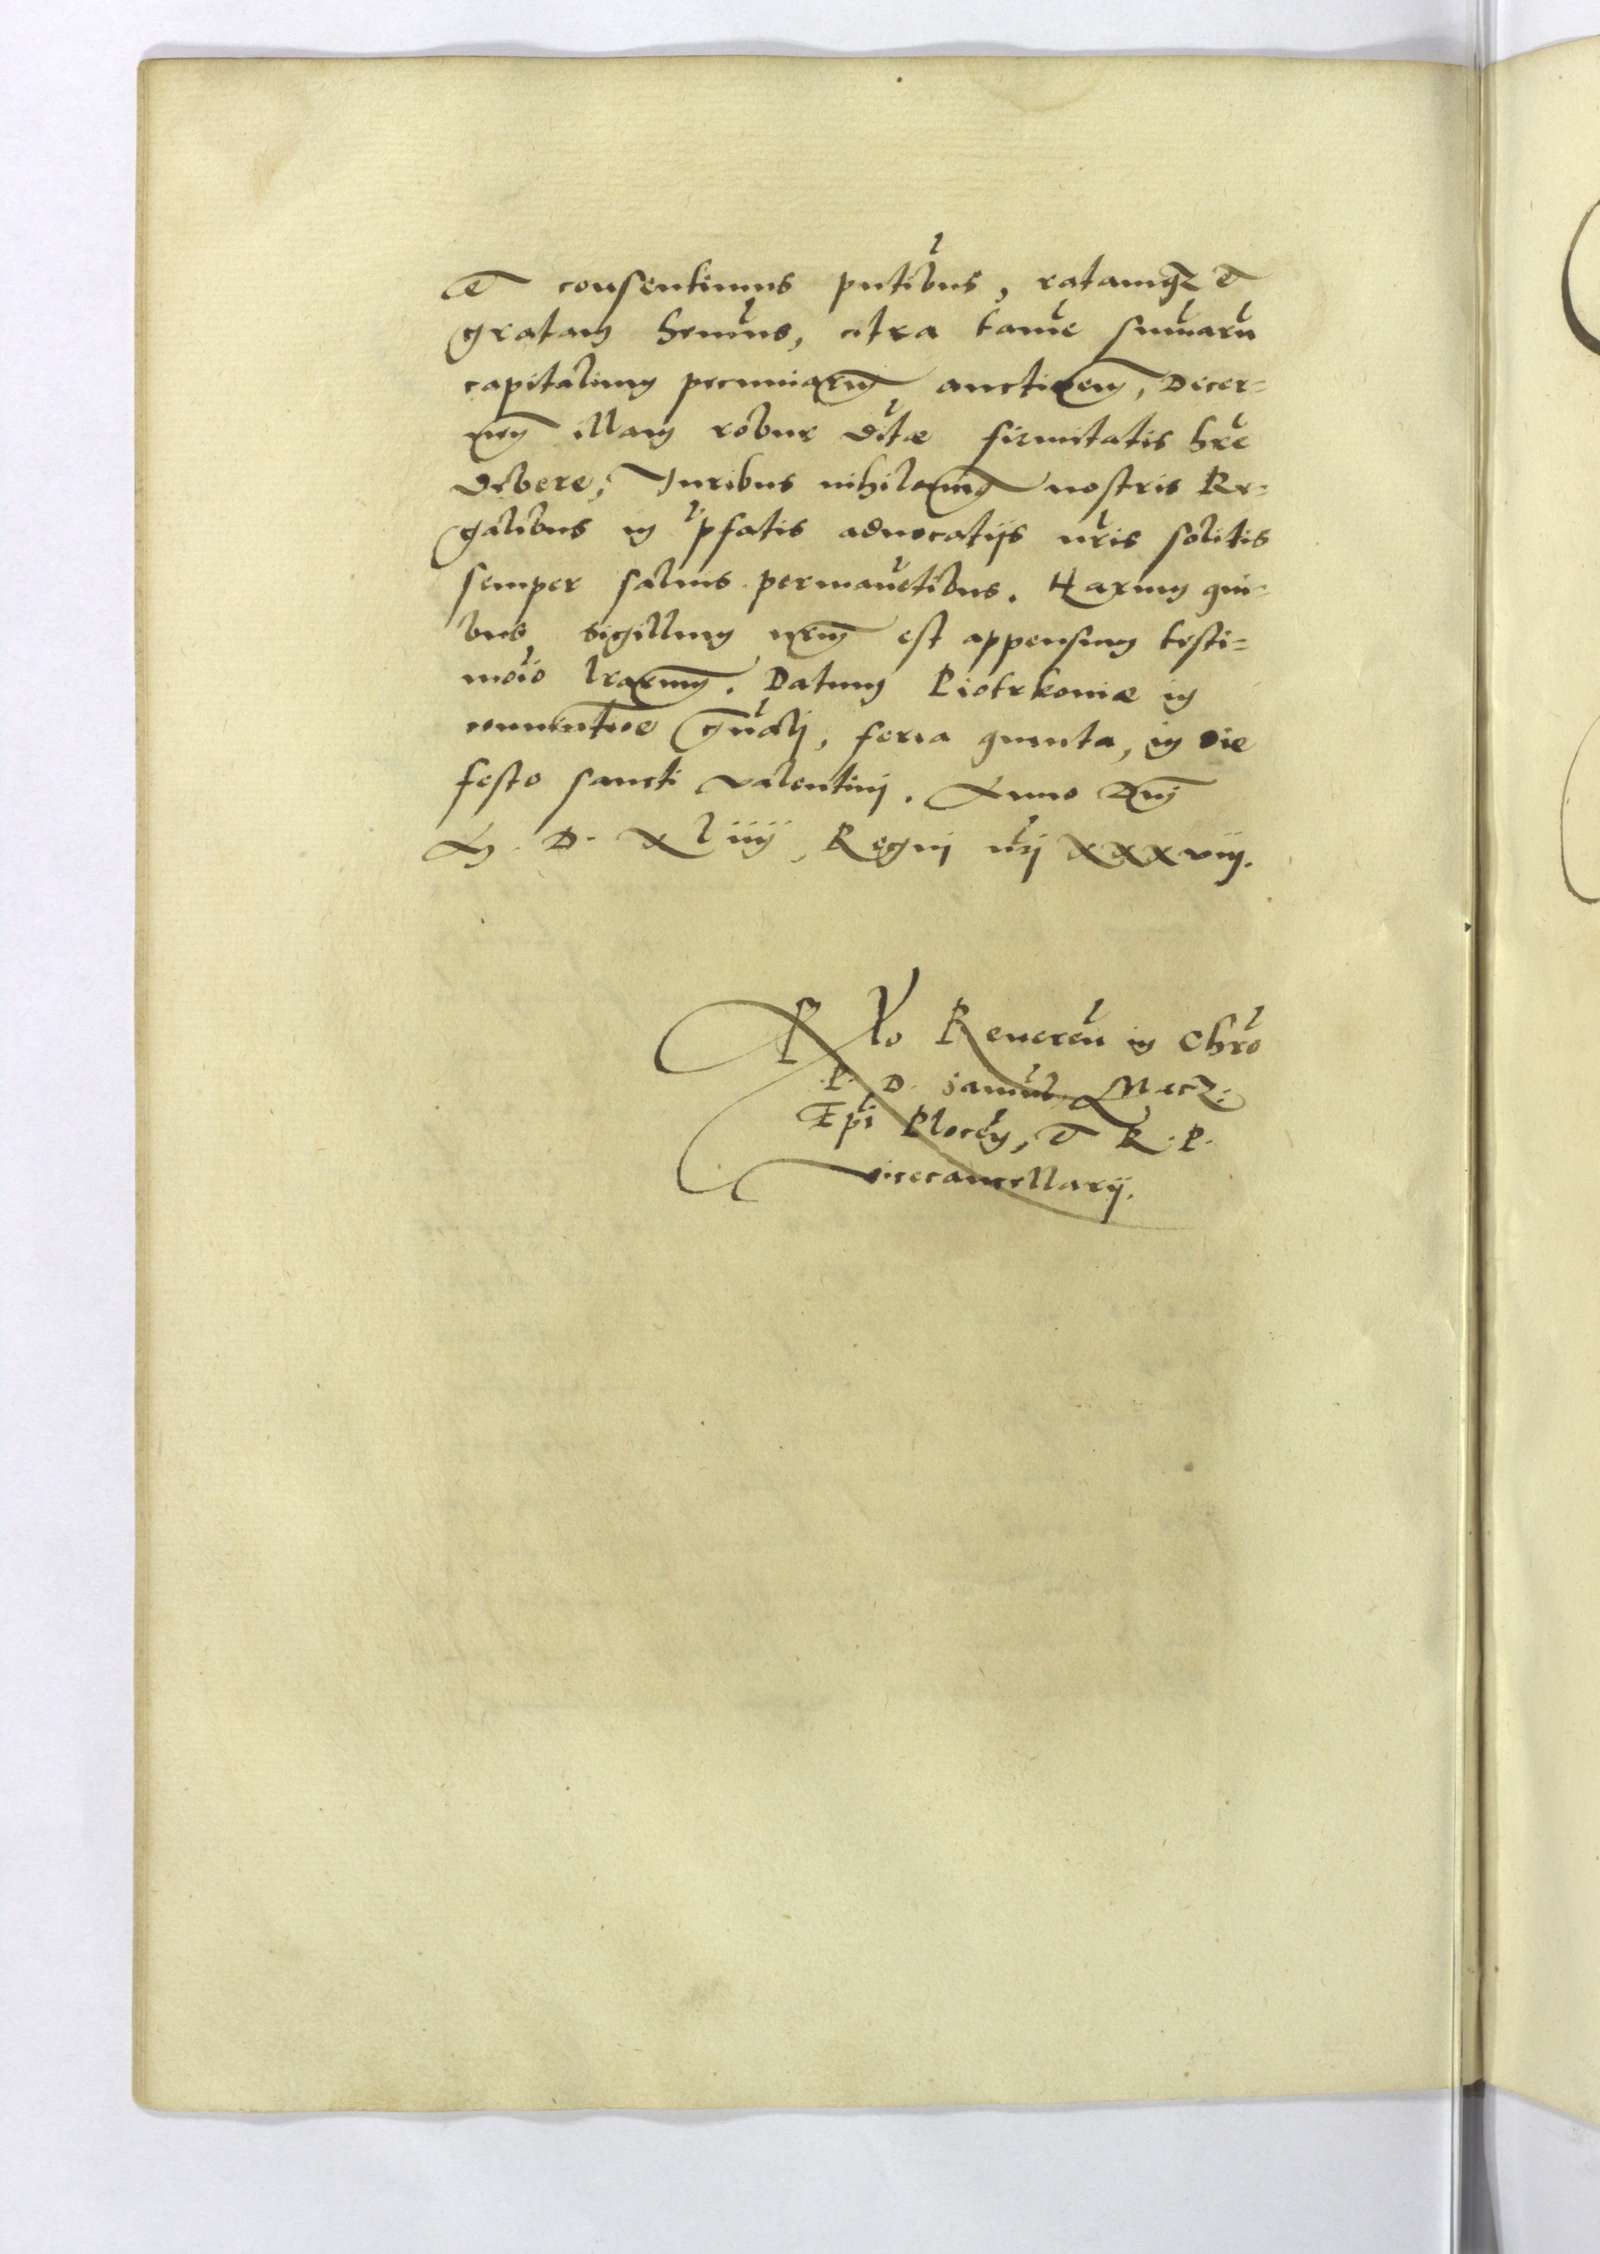 et consentimus pntibus, ratamq3 et
gratam hemus, citra tame summaru
capitalium pecuniarum auctionem, Decer-
nen illam robur ditæ firmitatis hre
debere, Juribus nihilominus nostris Re-
galibus in pfatis aduocatijs nris solitis
semper saluis permanetibus. Harum qui-
bus sigillum nrum est appensum testi-
moio lrarum. Datum Piotrkouiæ in
conuentioe gnali, feria quinta, in die
festo sancti valentini. Anno Dni
M. D. xliiij, Regni nri xxxviij.
Rlo Reueren in Chro
P. D. Samuel Macz:
Epi Plocen, et R. P.
vicecancellarij.